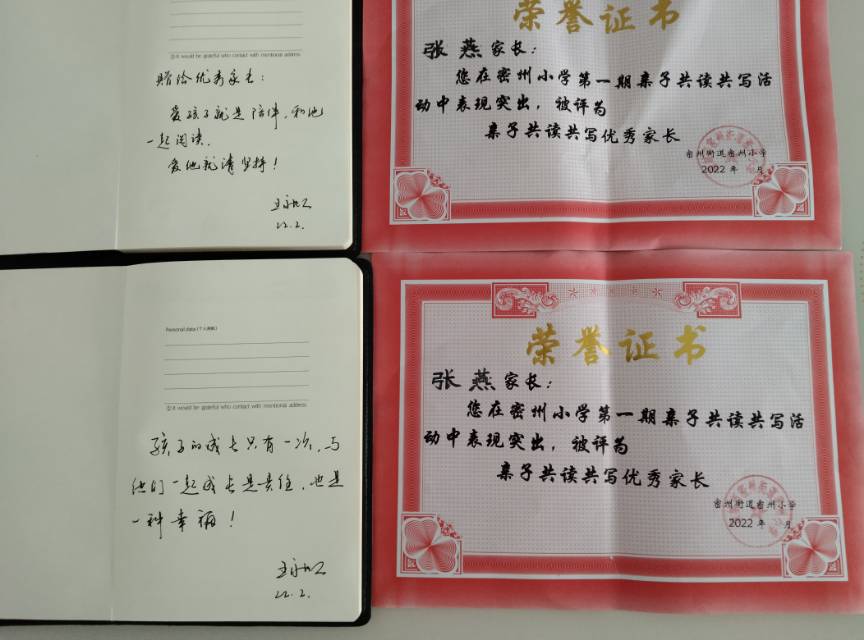 ①It would be grateful who contact with mentional address.
赠给优秀家长：
爱孩子就是陪伴，和他
一起阅读。
爱他就请坚持！
22.2.
荣誉证书
张燕家长：
您在密州小学第一期亲子共读共写活
动中表现突出，被评为
亲子共读共写优秀家长
密州街道密州小学
2022 年 月
Personal data (个人资料)
①It would be grateful who contact with mentional address.
孩子的成长只有一次，与
他们一起成长是责任，也是
一种幸福！
22.2.
荣誉证书
张燕家长：
您在密州小学第一期亲子共读共写活
动中表现突出，被评为
亲子共读共写优秀家长
密州街道密州小学
2022 年 月